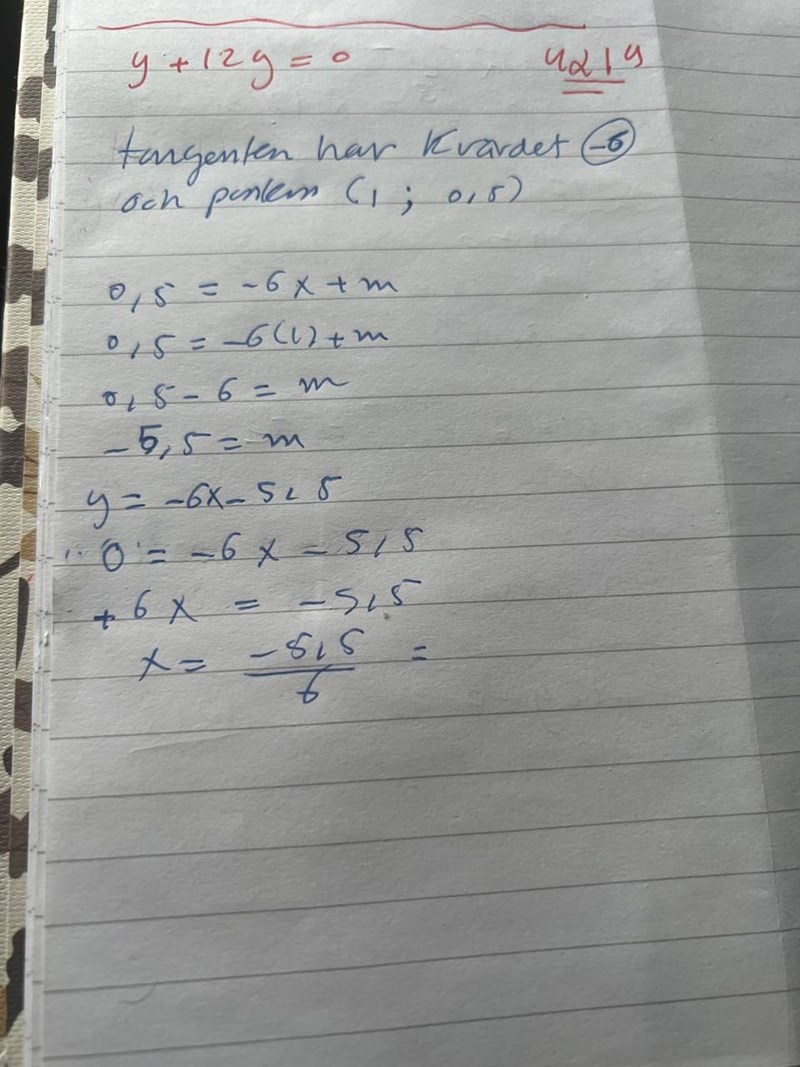 y + 12y = 0
tangenten har Kvärdet -6
och punkten (1 ; 0,5)
0,5 = -6x + m
0,5 = -6(1) + m
0,5 - 6 = m
-5,5 = m
y = -6x - 5,5
0 = -6x - 5,5
+6x = -5,5
x = -5,5/6 =